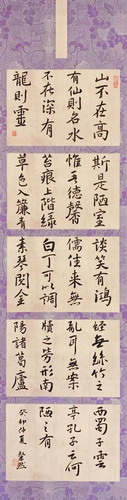 山不在高
有仙則名水
不在深有
龍則靈
斯是陋室
惟吾德馨
苔痕上階綠
草色入簾青
談笑有鴻
儒往來無
白丁可以調
素琴閱金
經無絲竹之
亂耳無案
牘之勞形南
陽諸葛廬
西蜀子雲
亭孔子云何
陋之有
癸卯仲夏